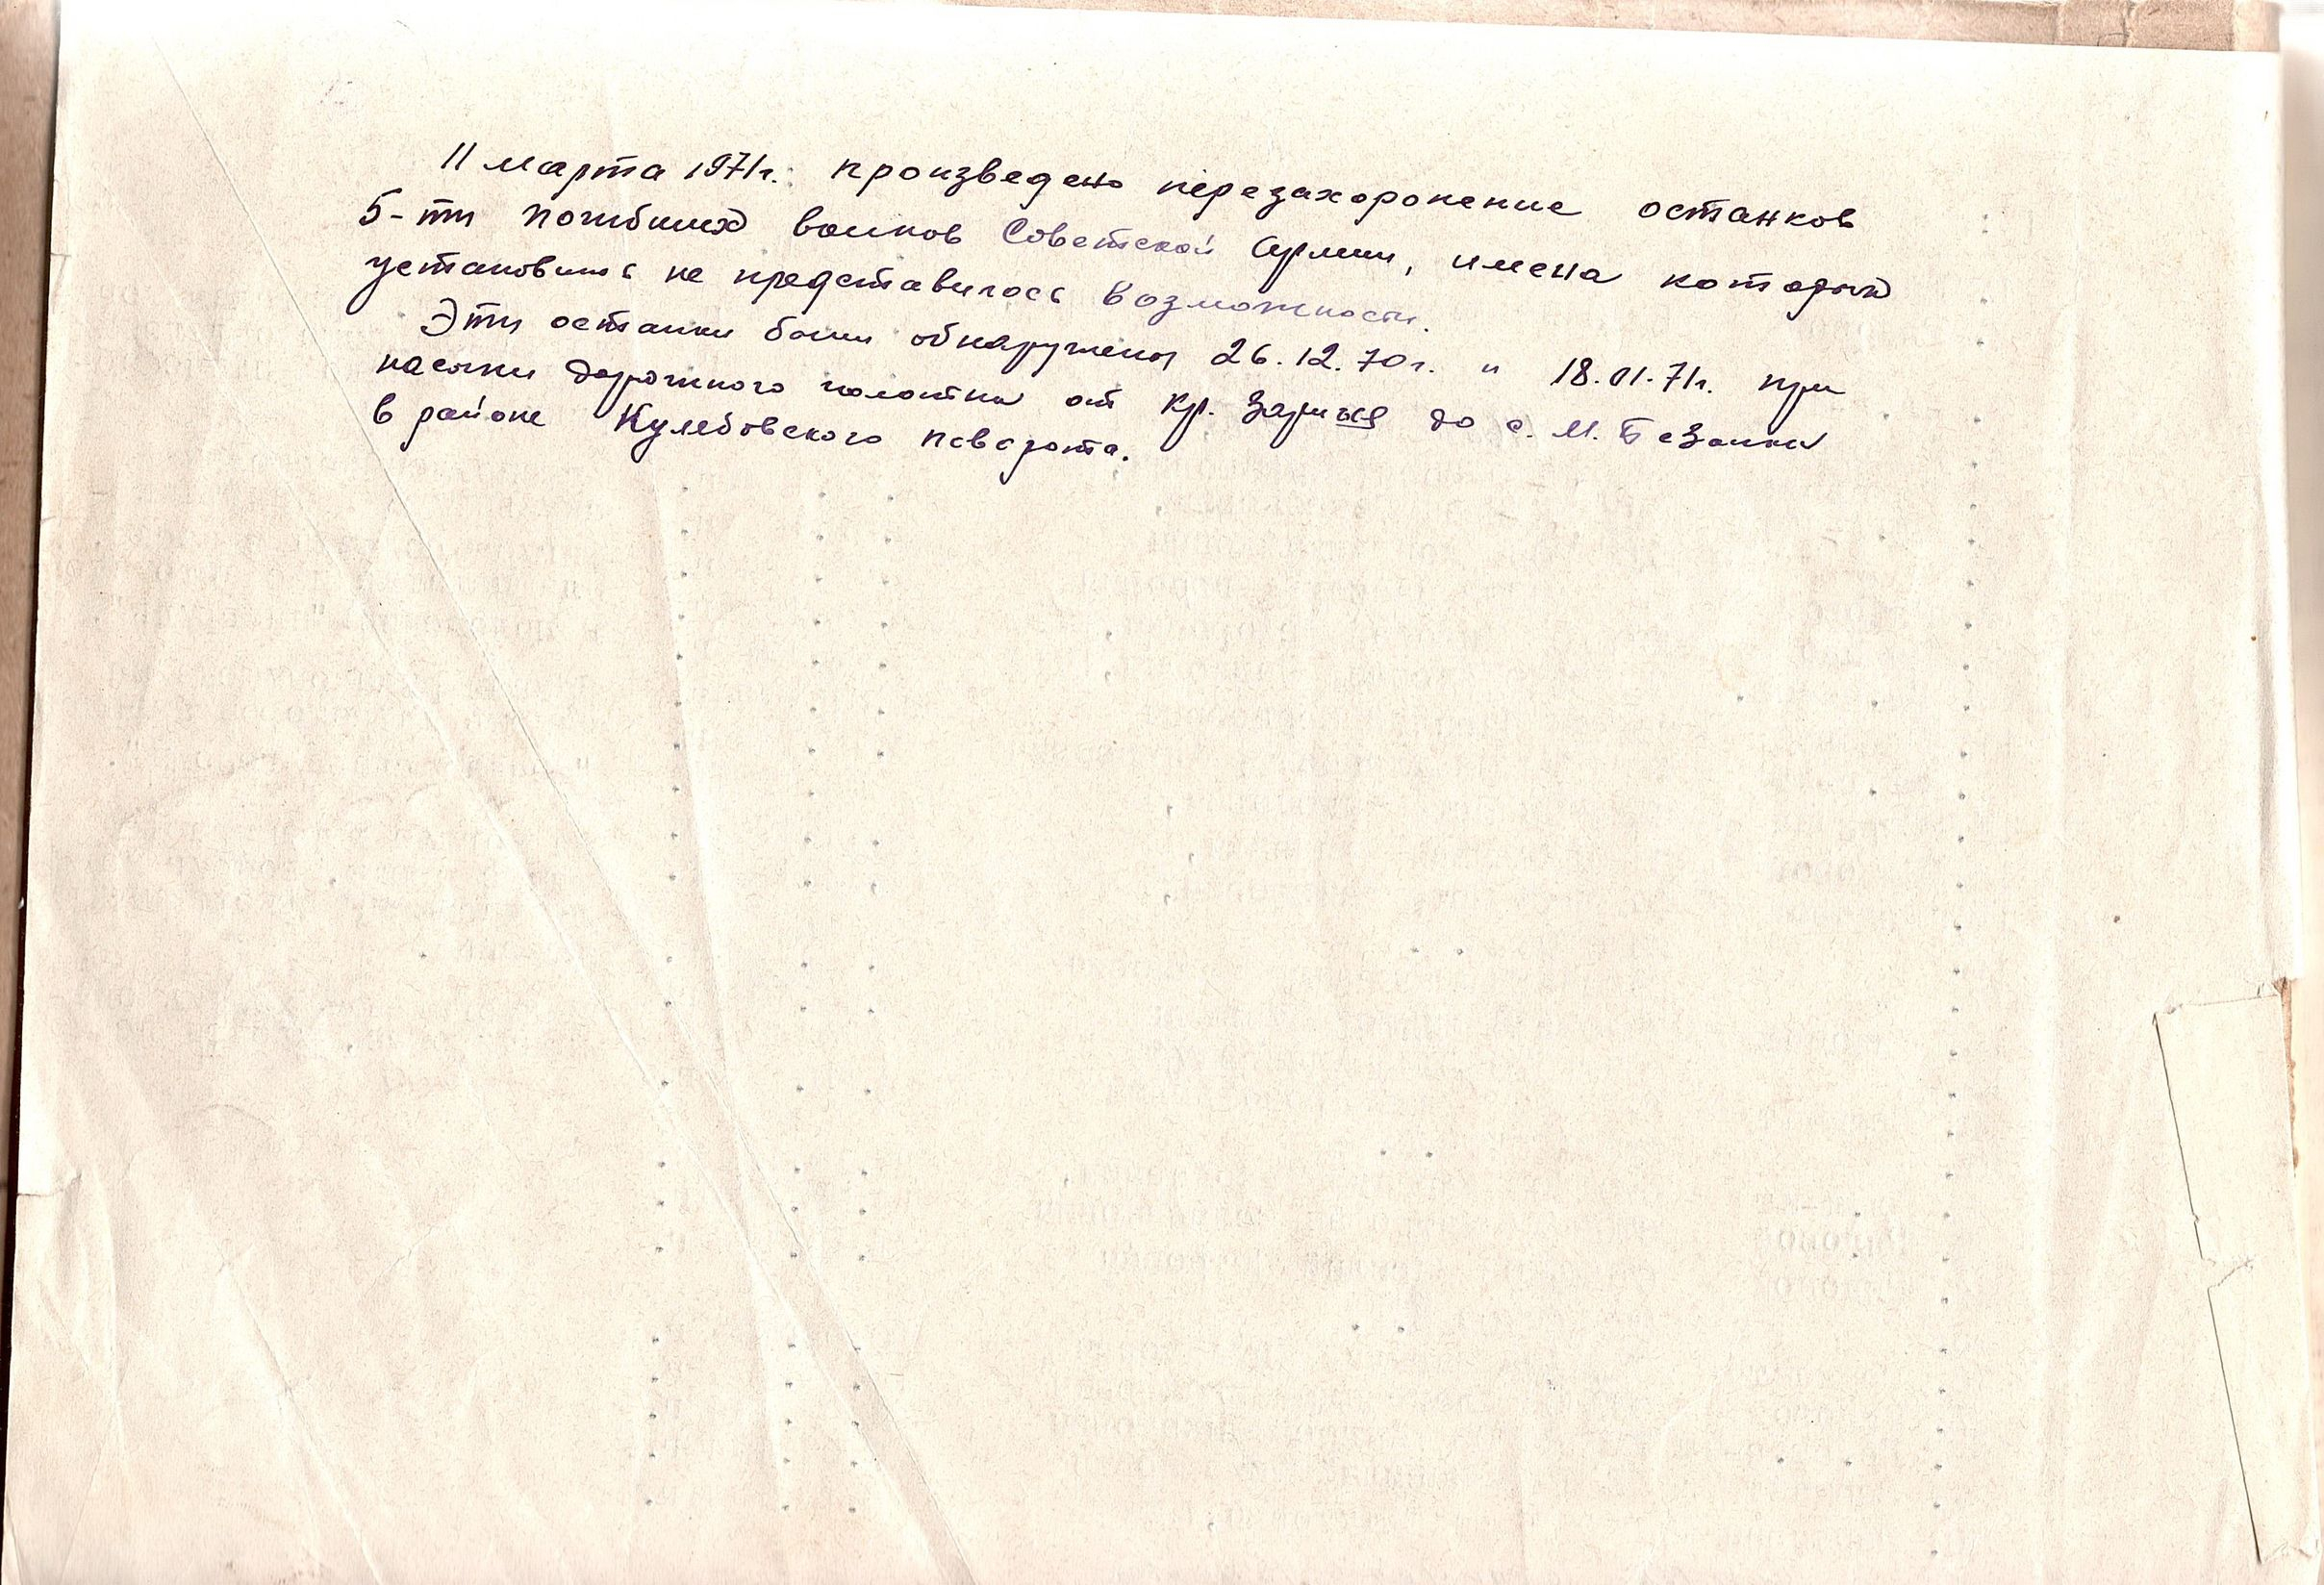 11 марта 1971г. произведено перезахоронение останков
5-ти погибших воинов Советской Армии, имена которых
установить не представилось возможности.
Эти останки были обнаружены 26.12.70г. и 18.01.71г. при
насыпи дорожного полотна от Кр. до с. М. Безотня
в районе Кулебовского поворота.